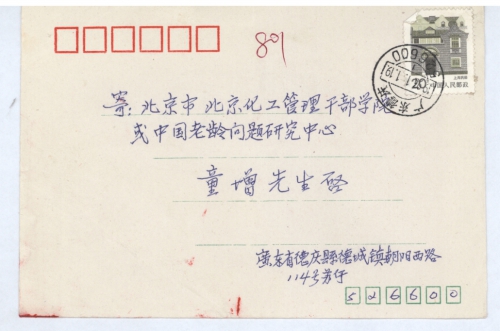 801
寄:北京市北京化工管理干部学院
或中国老龄问题研究中心
童增先生启
廣东省德庆縣德城镇朝阳西路
114号苏仔
526600
中国人民邮政
20